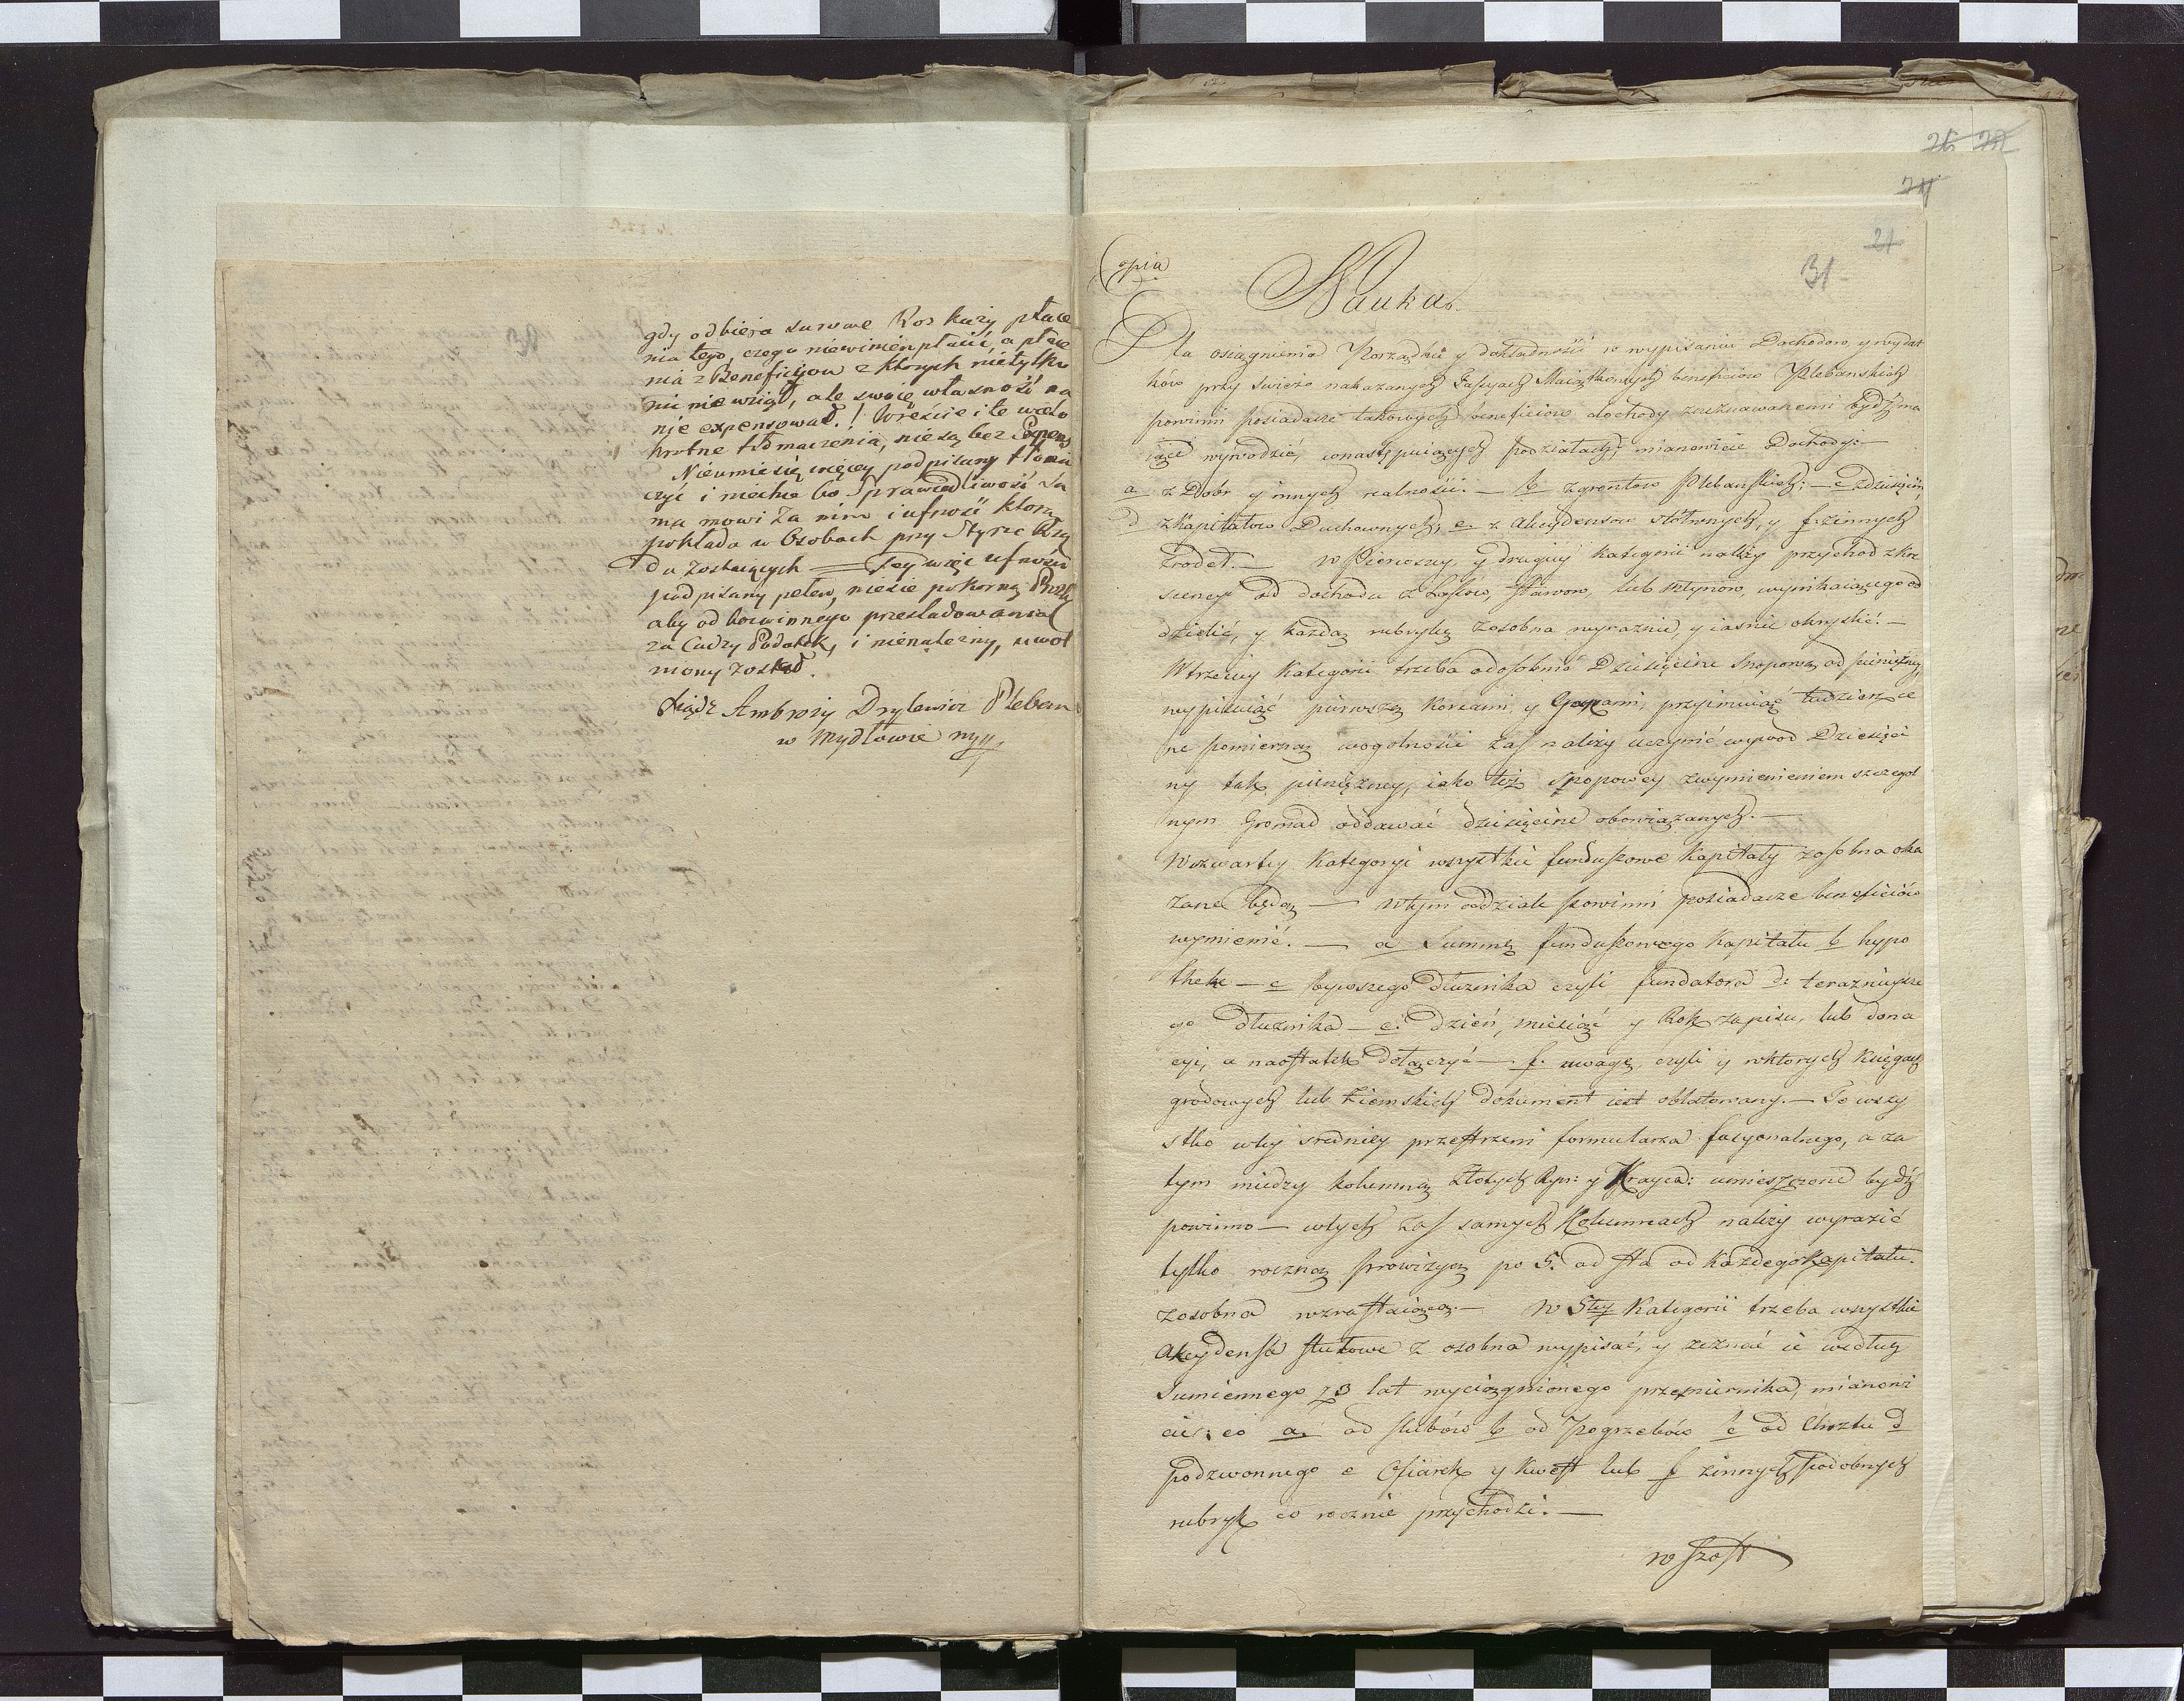 gdy odbiera surowe Roskazy płace
nia tego, czego niewinien płacić, a płace
nia z Beneficijow z ktorych nietylko
nic nie wziął, ale swoię własność na
nie expensował! Wreście i te wielo
krotne tłomaczenia, niesą bez Expens
Nieumieśię więcey podpisany tłoma
czyć i niechce bo Sprawiedliwość sa
ma mowi za nim i ufność ktorą
pokłada w Osobach przy Styrze Rzą
du zostaiących — Tey więc ufności
podpisany pełen, niesie pokorną Prośbę
aby od bezwinnego przesladowania
za Cudzy Podatek, i nienalezny, uwol
niony został.
Xiądz Ambrozy Drylewicz Pleban
w Mydłowie
26 22
21
21
31
Copia
Nauka.
Dla osiągnienia Porządku y dokładności w wypisaniu Dochodow, y wydat
ków przy swieżo nakazanych Fassyach Maiątkowych beneficiow Plebańskich
powinni posiadacze takowych beneficiow dochody zeznawanemi bydź ma
iące wywodzić, wnastępuiących podziałach; mianowicie Dochody:—
a z Dobr y innych realności. — b zgrontow Plebanskich: — c zdziesięcin,
d zKapitałow Duchownych, e. z Akcydensow stółowych, y f. zinnych
zrodeł. — w Pierwszey, y drugiey kategorii należy przychod zkre
scencyi od dochodu z Lassow, Stawow, lub Młynow, wynikaiącego od
dzielić, y każdą rubrykę zosobna wyraznie, y iasnie okryslić. —
W trzeciey Kategorii trzeba odosobnić Dziesięcine Snopową od pieniężney,
wypisuiąc pierwszą Korcami y Garcami, przyimuiąc tudzierz ce
ne pomierną wogolności zaś należy uczynić wywod Dziesięci
ny tak pieniężney, iako też snopowey zwymienieniem szczegol
nym Gromad oddawać dziesięcine obowiązanych. —
Wczwartey Kategoryi wszystkie funduszowe Kapitały zosobna oka
zane będą — Wtym oddziale powinni posiadacze beneficiów
wymienić. — a Summę funduszowego Kapitału b hypo
thekę — c bywszego Dłużnika czyli fundatora d: teraznieysze
go Dłużnika — e: Dzień, miesiąc y Rok zapisu, lub dona
cyi, a naostatek dołączyć — f. uwagę, czyli y wktorych Księgach
grodowych lub Ziemskich dokument iest oblatowany. — To wszy
stko wtey sredniey przestrzeni formularza fasyonalnego, a za
tym miedzy kolumną złotych Ryn: y Krayca: umieszczone bydź
powinno — wtych zaś samych Kolumnach należy wyrazić
tylko roczną prowizyą po 5. od sta od każdego Kapitału
zosobna wzrastaiącą. — W 5tey Kategorii trzeba wszystkie
Akcydensa stułowe z osobna wypisać, y zeznać ie według
Sumiennego z 3 lat wyciągnionego przemiernika, mianowi
cie: co a. od slubów b od Pogrzebów c od Chrztu d
podzwonnego e Ofiarek y Kwest lub f zinnych podobnych
rubryk co rocznie przychodzi. —
w szost